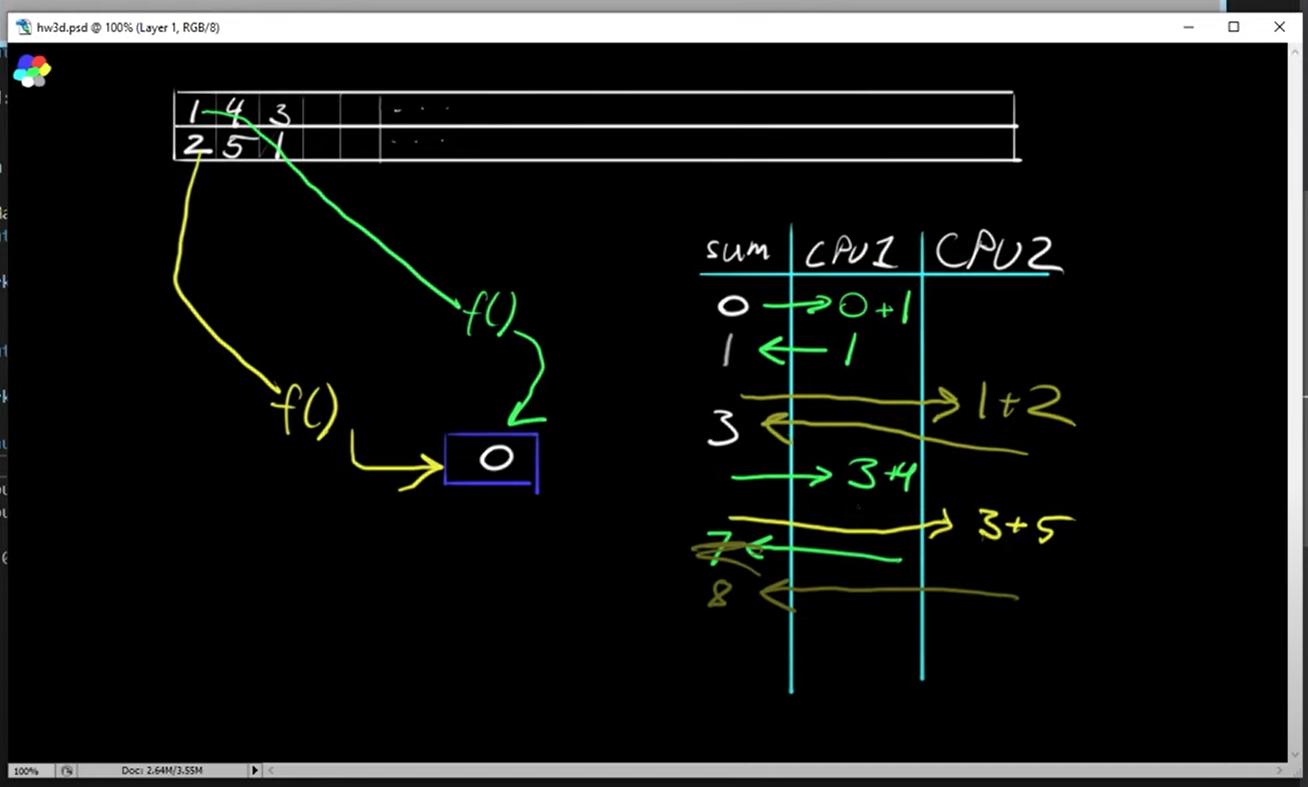 hw3d.psd @ 100% (Layer 1, RGB/8)
1 4 3 - · · ·
2 5 1 - · · ·
sum CPU1 CPU2
0 0+1
1 1
1+2
3
3+4
3+5
7
8
f()
f()
0
100% Doc: 2.64M/3.55M